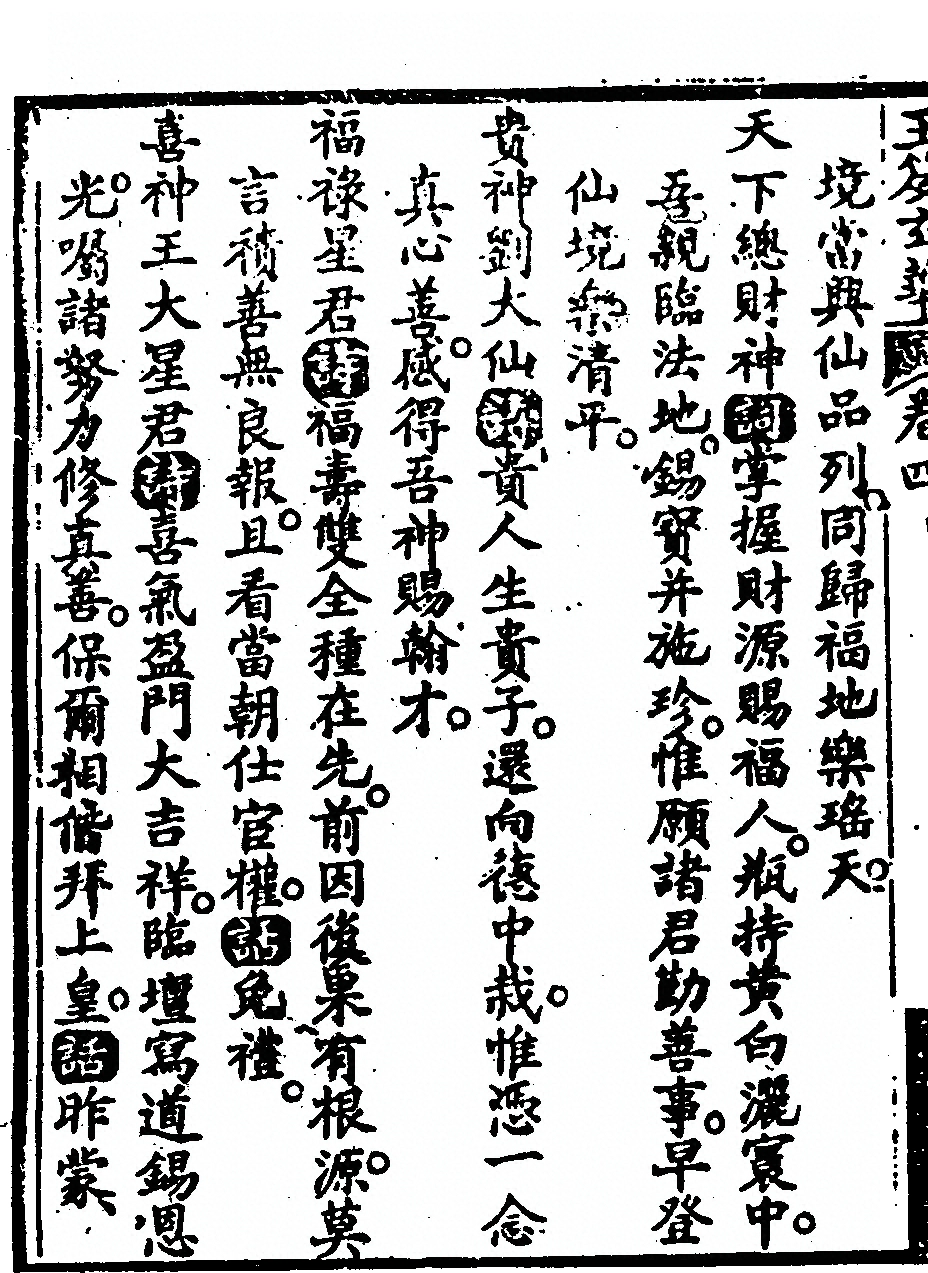 卷四
境當興仙品列同歸福地樂瑤天
天下總財神詞掌握財源賜福人瓶持黃白灑寰中
吾親臨法地錫寶并施珍惟願諸君勤善事早登
仙境樂清平
貴神劉大仙詩貴人生貴子還向德中栽惟憑一念
真心善感得吾神賜翰才
福祿星君詩福壽雙全種在先前因後果有根源莫
言積善無良報且看當朝仕宦權話免禮
喜神王大星君詩喜氣盈門大吉祥臨壇寫道錫恩
光囑諸努力修真善保爾相偕拜上皇話昨蒙